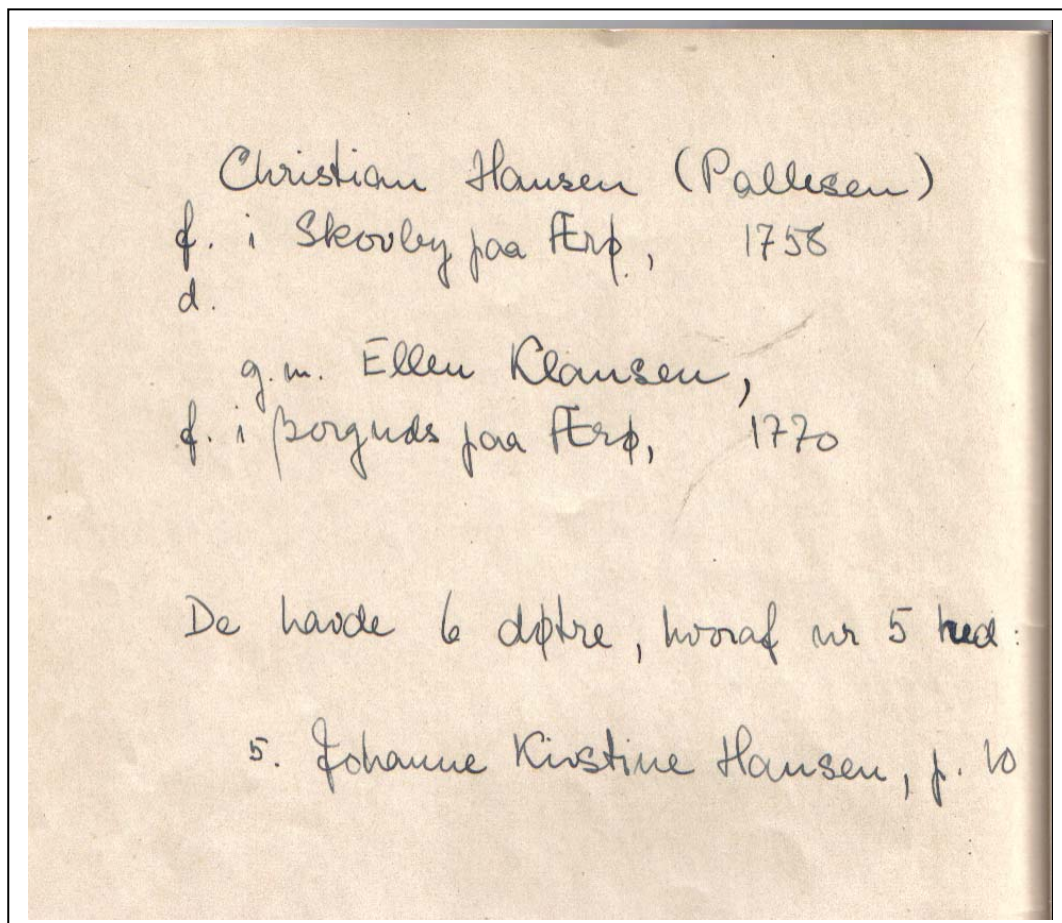 Christian Hansen (Pallesen)
f. i Skovby paa Ærø, 1758
d.
g.m. Ellen Klausen,
f. i Borgnds paa Ærø, 1770
De havde 6 døtre, hvoraf nr 5 hed:
5. Johanne Kirstine Hansen, p. 10